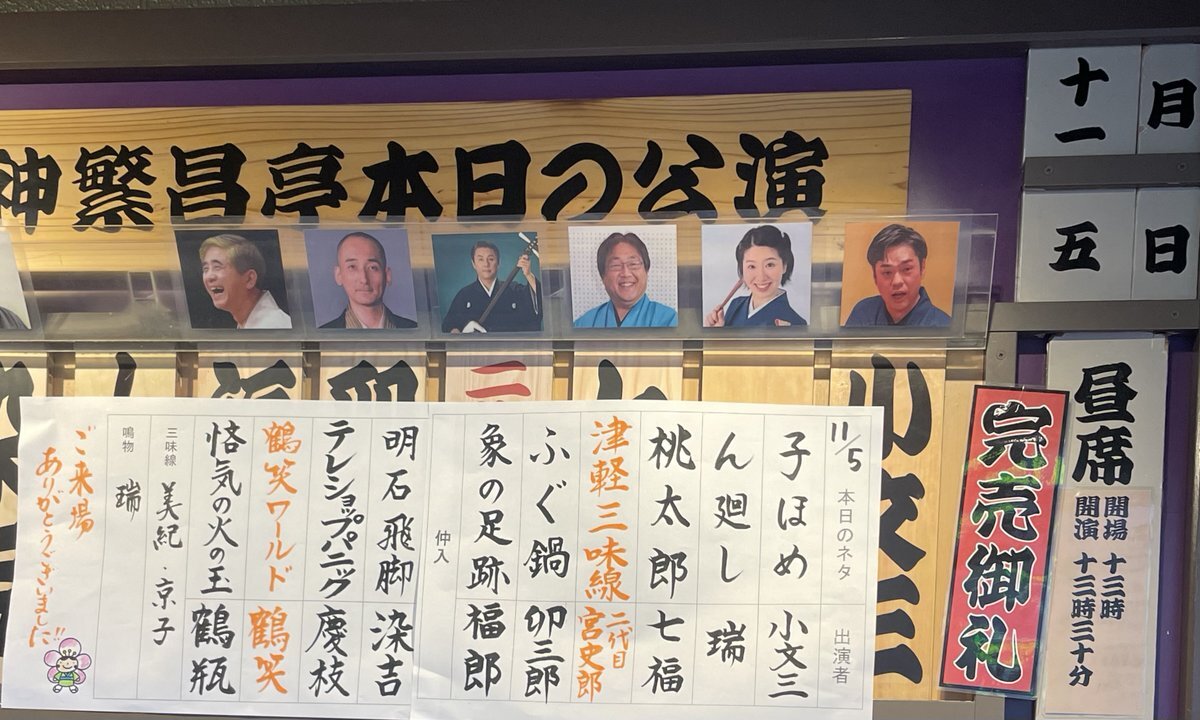 神繁昌亭本日の公演
十一月
五日
昼席
開場 十三時
開演 十三時三十分
完売御礼
11/5 本日のネタ 出演者
子ほめ 小文三
ん廻し 瑞
桃太郎 七福
津軽三味線 二代目宮史郎
ふぐ鍋 卯三郎
象の足跡 福郎
仲入
明石飛脚 染吉
テレショップパニック 慶枝
鶴笑ワールド 鶴笑
悋気の火の玉 鶴瓶
三味線 美紀・京子
鳴物 瑞
ご来場
ありがとうございました!!